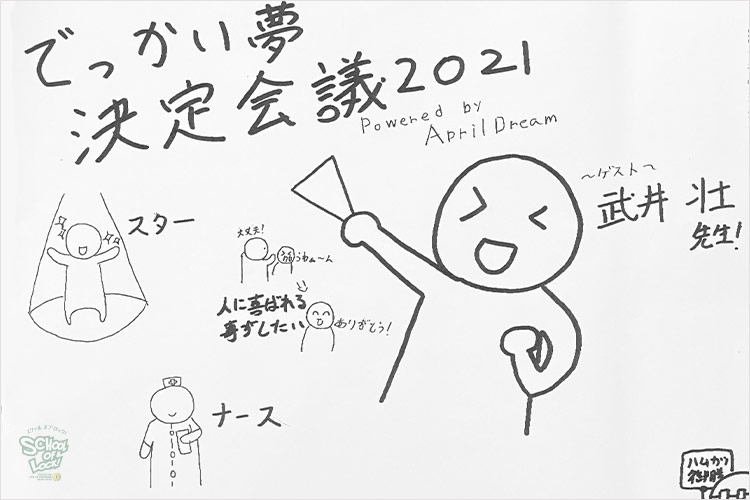 でっかい夢
決定会議2021
Powered by
April Dream
～ゲスト～
武井 壮
先生!
スター
大丈夫!
うわぁ～ん
人に喜ばれる
事がしたい
ありがとう!
ナース
スクール オブ ロック!
SCHOOL
OF
LOCK!
ハムかツ